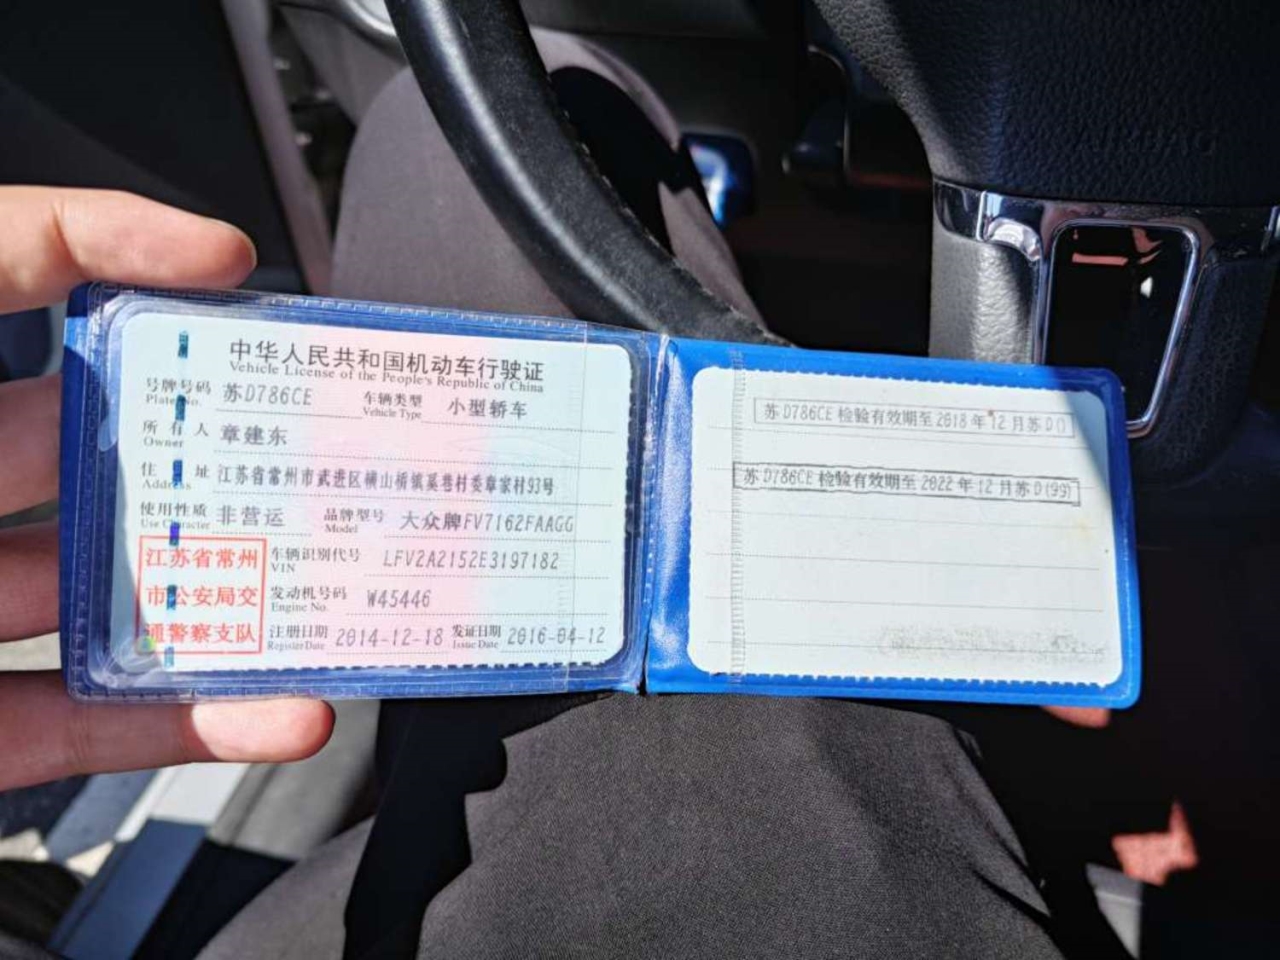 中华人民共和国机动车行驶证
Vehicle License of the People's Republic of China
号牌号码 苏D786CE 车辆类型 小型轿车
Plate No. Vehicle Type
所有人 章建东
Owner
住址 江苏省常州市武进区横山桥镇奚巷村委章家村93号
Address
使用性质 非营运 品牌型号 大众牌FV7162FAAGG
Use Character Model
江苏省常州
市公安局交
通警察支队
车辆识别代号 LFV2A2152E3197182
VIN
发动机号码 W45446
Engine No.
注册日期 2014-12-18 发证日期 2016-04-12
Register Date Issue Date
苏D786CE检验有效期至2018年12月苏D()
苏D786CE检验有效期至2022年12月苏D(99)